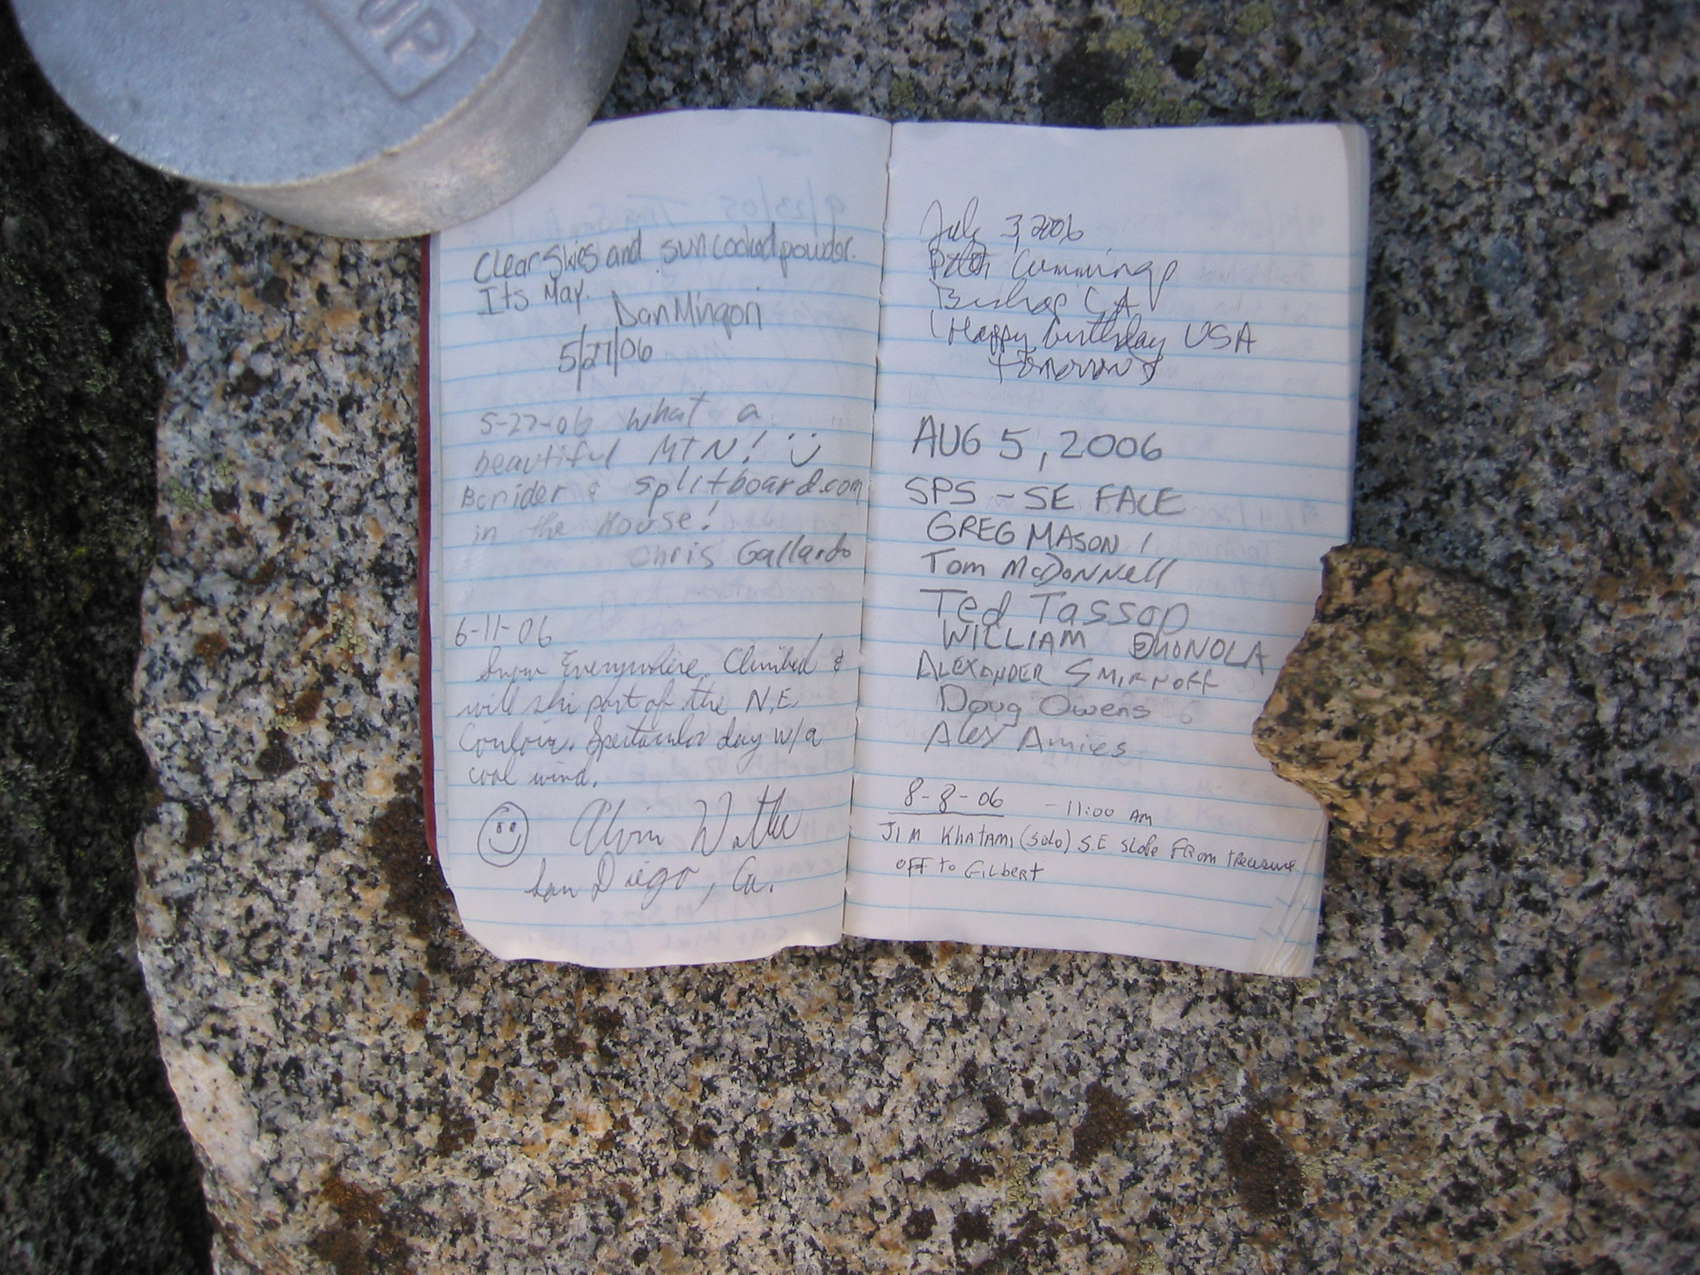 UP
Clear skies and sun cooked powder.
Its May.
Dan Mingori
5/27/06
5-27-06 what a
beautiful MTN!
Bcrider & splitboard.com
in the House!
Chris Gallardo
6-11-06
Snow Everywhere. Climbed &
will ski part of the N.E.
Couloir. Spectacular day w/a
cool wind.
Alvin
San Diego, Ca.
July 3, 2006
Cummings
Bishop CA
Happy birthday USA
tomorrow
AUG 5, 2006
SPS - SE FACE
GREG MASON
Tom McDonnell
Ted Tassop
WILLIAM
ALEXANDER SMIRNOFF
Doug Owens
Alex Amies
8-8-06 - 11:00 AM
JIM KHATAMI (solo) S.E slope From treasure
off to Gilbert